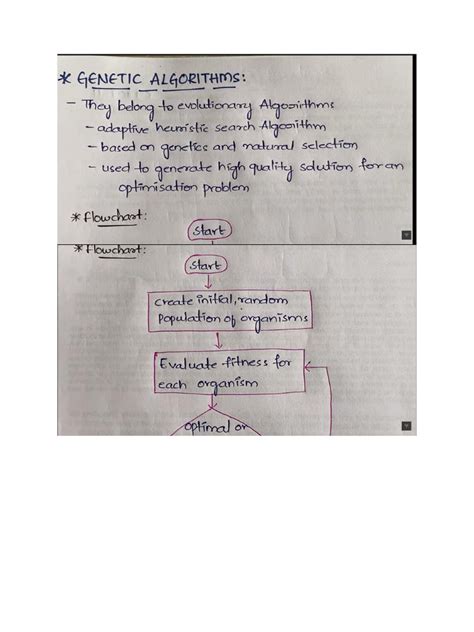 * GENETIC ALGORITHMS:
- They belong to evolutionary Algorithms
- adaptive heuristic search Algorithm
- based on genetics and natural selection
- used to generate high quality solution for an
optimisation problem
* flowchart:
Start
* flowchart:
Start
create initial, random
Population of organisms
Evaluate fitness for
each organism
optimal or